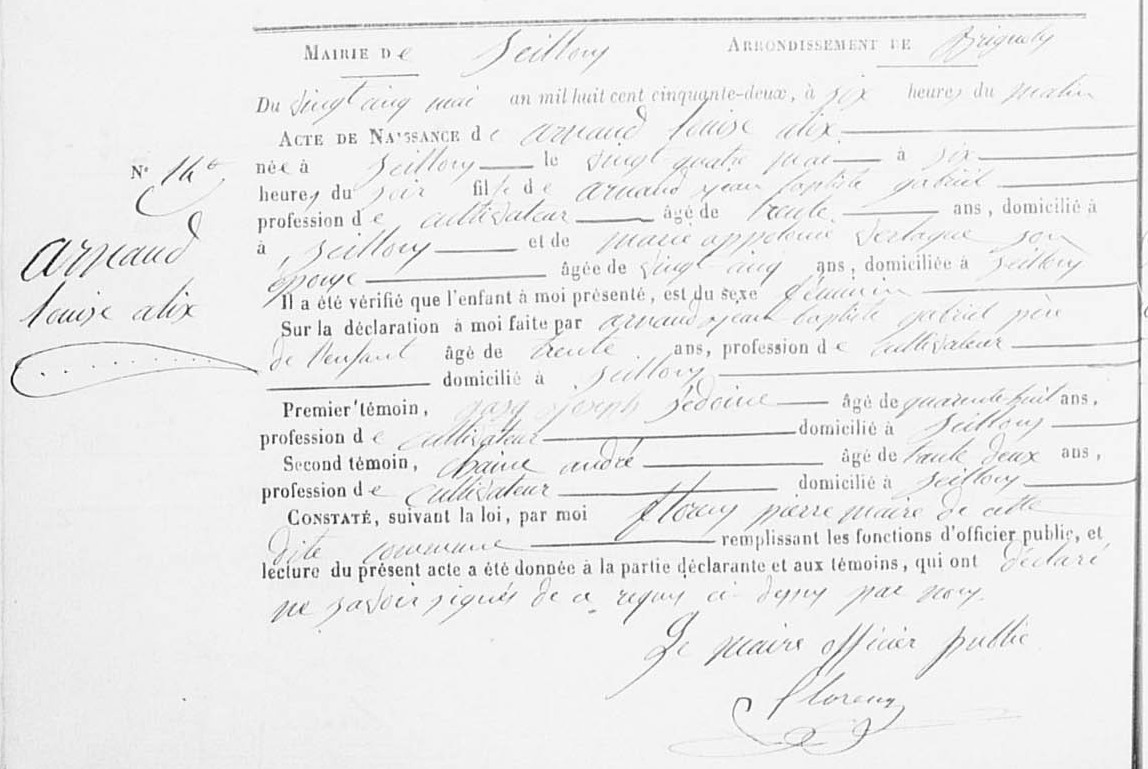 MAIRIE De Seillons ARRONDISSEMENT DE Brignoles
Du vingt cinq mai an mil huit cent cinquante-deux, à six heures du matin
ACTE DE NAISSANCE de arnaud louise alix
née à Seillons le vingt quatre mai à six
heures du soir fille de arnaud jean baptiste gabriel
profession de cultivateur âgé de trente ans, domicilié à
à Seillons et de marie appolonie son
épouse âgée de vingt cinq ans, domiciliée à Seillons
Il a été vérifié que l'enfant à moi présenté, est du sexe féminin
Sur la déclaration à moi faite par arnaud jean baptiste gabriel père
de l'enfant âgé de trente ans, profession de cultivateur
domicilié à Seillons
Premier témoin, joseph âgé de quarente huit ans,
profession de cultivateur domicilié à Seillons
Second témoin, chaine andré âgé de trente deux ans,
profession de cultivateur domicilié à Seillons
CONSTATÉ, suivant la loi, par moi florens pierre maire de cette
dite commune remplissant les fonctions d'officier public, et
lecture du présent acte a été donnée à la partie déclarante et aux témoins, qui ont déclaré
ne savoir signés de ce requis ci dessus par nous.
Le maire officier public
florens
N° 14
arnaud
louise alix